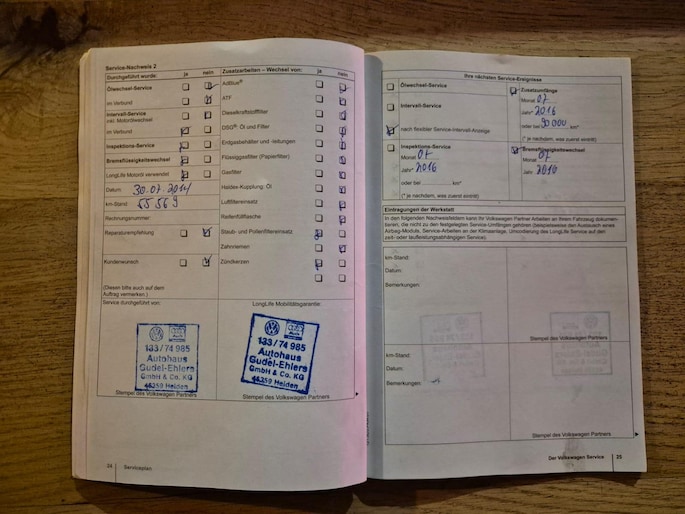 Service-Nachweis 2
Durchgeführt wurde: ja nein
Ölwechsel-Service
im Verbund
Intervall-Service
inkl. Motorölwechsel
im Verbund
Inspektions-Service
Bremsflüssigkeitswechsel
LongLife Motoröl verwendet
Datum: 30.07.2014
km-Stand: 55 569
Rechnungsnummer:
Reparaturempfehlung
Kundenwunsch
(Diesen bitte auch auf dem
Auftrag vermerken.)
Zusatzarbeiten – Wechsel von: ja nein
AdBlue®
ATF
Dieselkraftstofffilter
DSG®: Öl und Filter
Erdgasbehälter und -leitungen
Flüssiggasfilter (Papierfilter)
Gasfilter
Haldex-Kupplung: Öl
Luftfiltereinsatz
Reifenfüllflasche
Staub- und Pollenfiltereinsatz
Zahnriemen
Zündkerzen
Service durchgeführt von:
133/74 985
Autohaus
Gudel-Ehlers
GmbH & Co. KG
46359 Heiden
Stempel des Volkswagen Partners
LongLife Mobilitätsgarantie:
133/74 985
Autohaus
Gudel-Ehlers
GmbH & Co. KG
46359 Heiden
Stempel des Volkswagen Partners
24 Serviceplan
Ihre nächsten Service-Ereignisse
Ölwechsel-Service
Intervall-Service
nach flexibler Service-Intervall-Anzeige
Zusatzumfänge
Monat 07
Jahr* 2016
oder bei 90 000 km*
(* je nachdem, was zuerst eintritt)
Inspektions-Service
Monat 07
folgenden
Jahr* 2016
oder bei km*
(* je nachdem, was zuerst eintritt)
Bremsflüssigkeitswechsel
Monat 07
Jahr 2016
Eintragungen der Werkstatt
In den folgenden Nachweisfeldern kann Ihr Volkswagen Partner Arbeiten an Ihrem Fahrzeug dokumen-
tieren, die nicht zu den festgelegten Service-Umfängen gehören (beispielsweise den Austausch eines
Airbag-Moduls, Service-Arbeiten an der Klimaanlage, Umcodierung des LongLife Service auf den
zeit- oder laufleistungsabhängigen Service).
km-Stand:
Datum:
Bemerkungen:
Stempel des Volkswagen Partners
km-Stand:
Datum:
Bemerkungen:
Stempel des Volkswagen Partners
Der Volkswagen Service 25